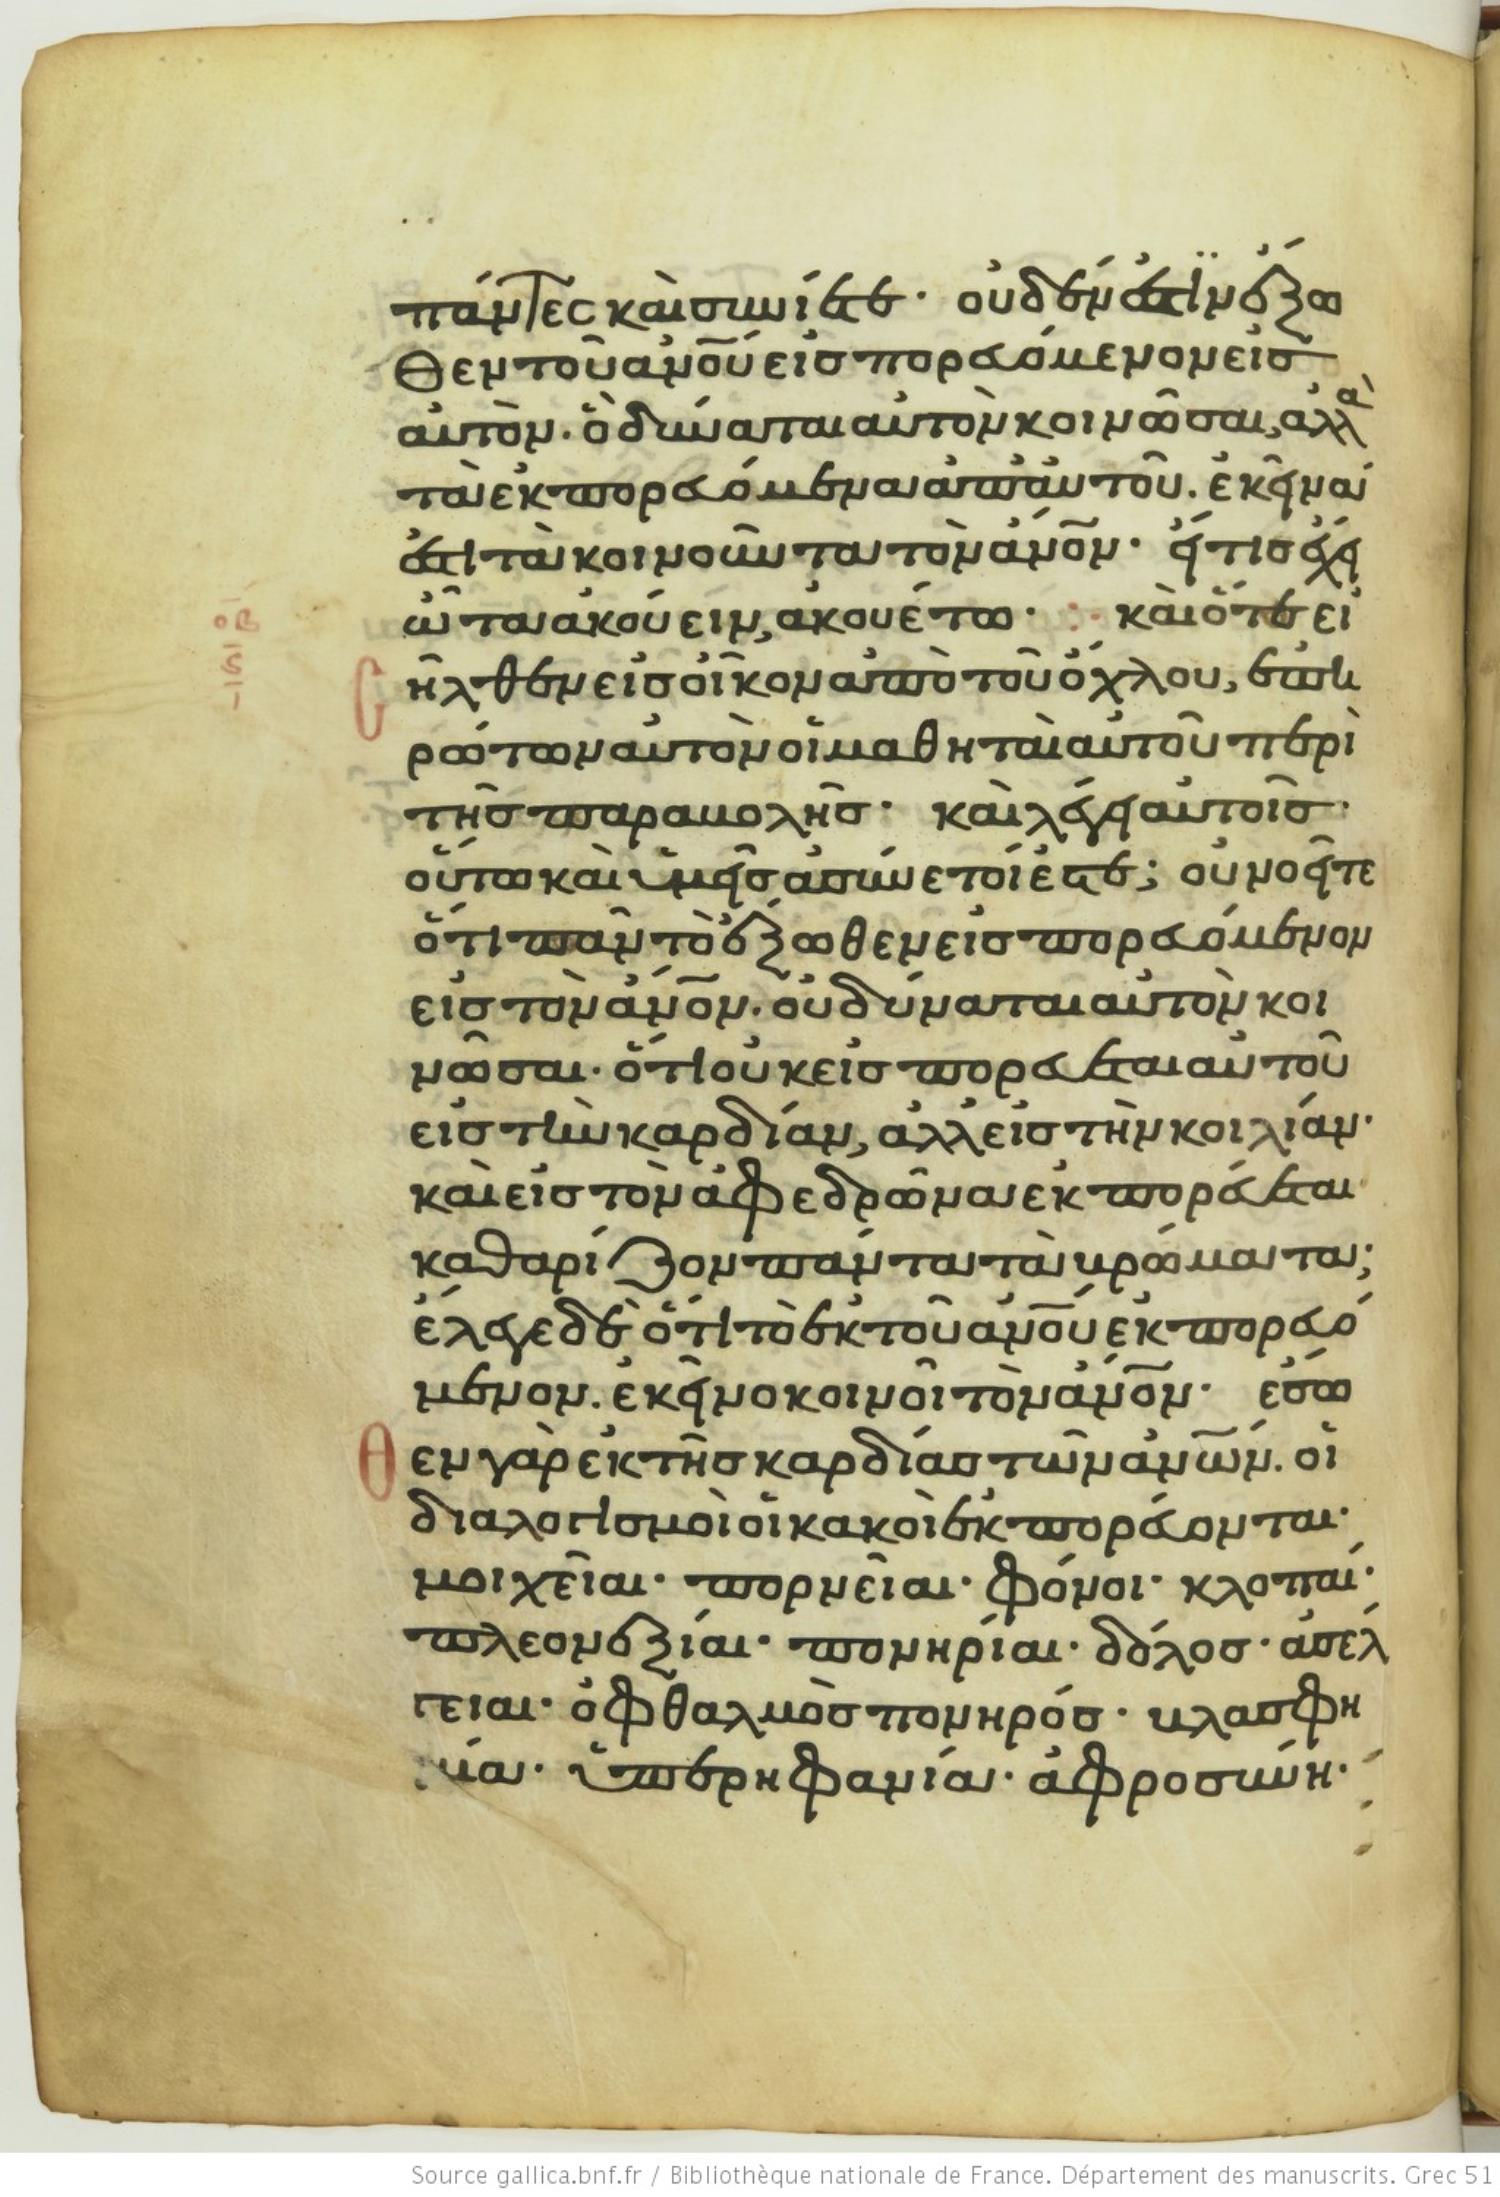 πάντες καὶ συνίετε· οὐδέν ἐστϊν ἔξω
θεν τοῦ ἀνου εἰσπορευόμενον εἰς
αὐτὸν. ὃ δύναται αὐτὸν κοινῶσαι, ἀλλὰ
τὰ ἐκπορευόμενα ἀπ' αὐτοῦ. ἐκεῖνά
ἐστι τὰ κοινοῦντα τὸν ἄνον· εἴ τις ἔχει
ὦτα ἀκούειν, ἀκουέτω· καὶ ὅτε εἰ
ο̅β̅
ς̅
ι̅
Cῆλθεν εἰς οἶκον ἀπὸ τοῦ ὄχλου, ἐπη
ρώτων αὐτὸν οἱ μαθηταὶ αὐτοῦ περὶ
τῆς παραβολῆς· καὶ λέγει αὐτοῖς·
οὕτω καὶ ὑμεῖς ἀσύνετοί ἐστε; οὐ νοεῖτε
ὅτι πᾶν τὸ ἔξωθεν εἰσπορευόμενον
εἰς τὸν ἄνον. οὐ δύναται αὐτὸν κοι
νῶσαι· ὅτι οὐκ εἰσπορεύεται αὐτοῦ
εἰς τὴν καρδίαν, ἀλλ' εἰς τὴν κοιλίαν·
καὶ εἰς τὸν ἀφεδρῶνα ἐκπορεύεται
καθαρίζον πάντα τὰ βρώματα;
ἔλεγε δὲ ὅτι τὸ ἐκ τοῦ ἀνου ἐκπορευό
μενον. ἐκεῖνο κοινοῖ τὸν ἄνον· ἔσω
Θεν γὰρ ἐκ τῆς καρδίας τῶν ἀνων. οἱ
διαλογισμοὶ οἱ κακοὶ ἐκπορεύονται·
μοιχεῖαι· πορνεῖαι· φόνοι· κλοπαί·
πλεονεξίαι· πονηρίαι· δόλος· ἀσέλ
γειαι· ὀφθαλμὸς πονηρός· βλασφη
μία· ὑπερηφανία· ἀφροσύνη·
Source gallica.bnf.fr / Bibliothèque nationale de France. Département des manuscrits. Grec 51